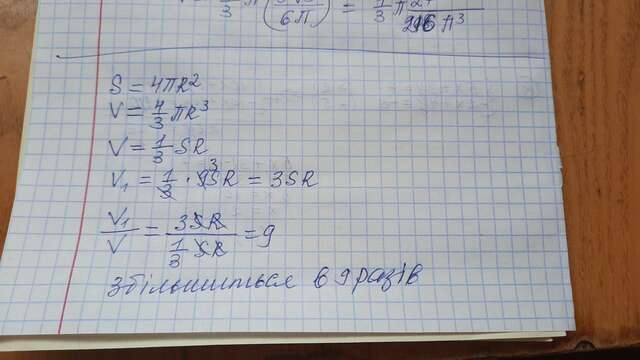 S = 4πR²
V = 4/3 πR³
V = 1/3 SR
V₁ = 1/3 · 9³SR = 3SR
V₁/V = 3SR / 1/3 SR = 9
збільшиться в 9 разів